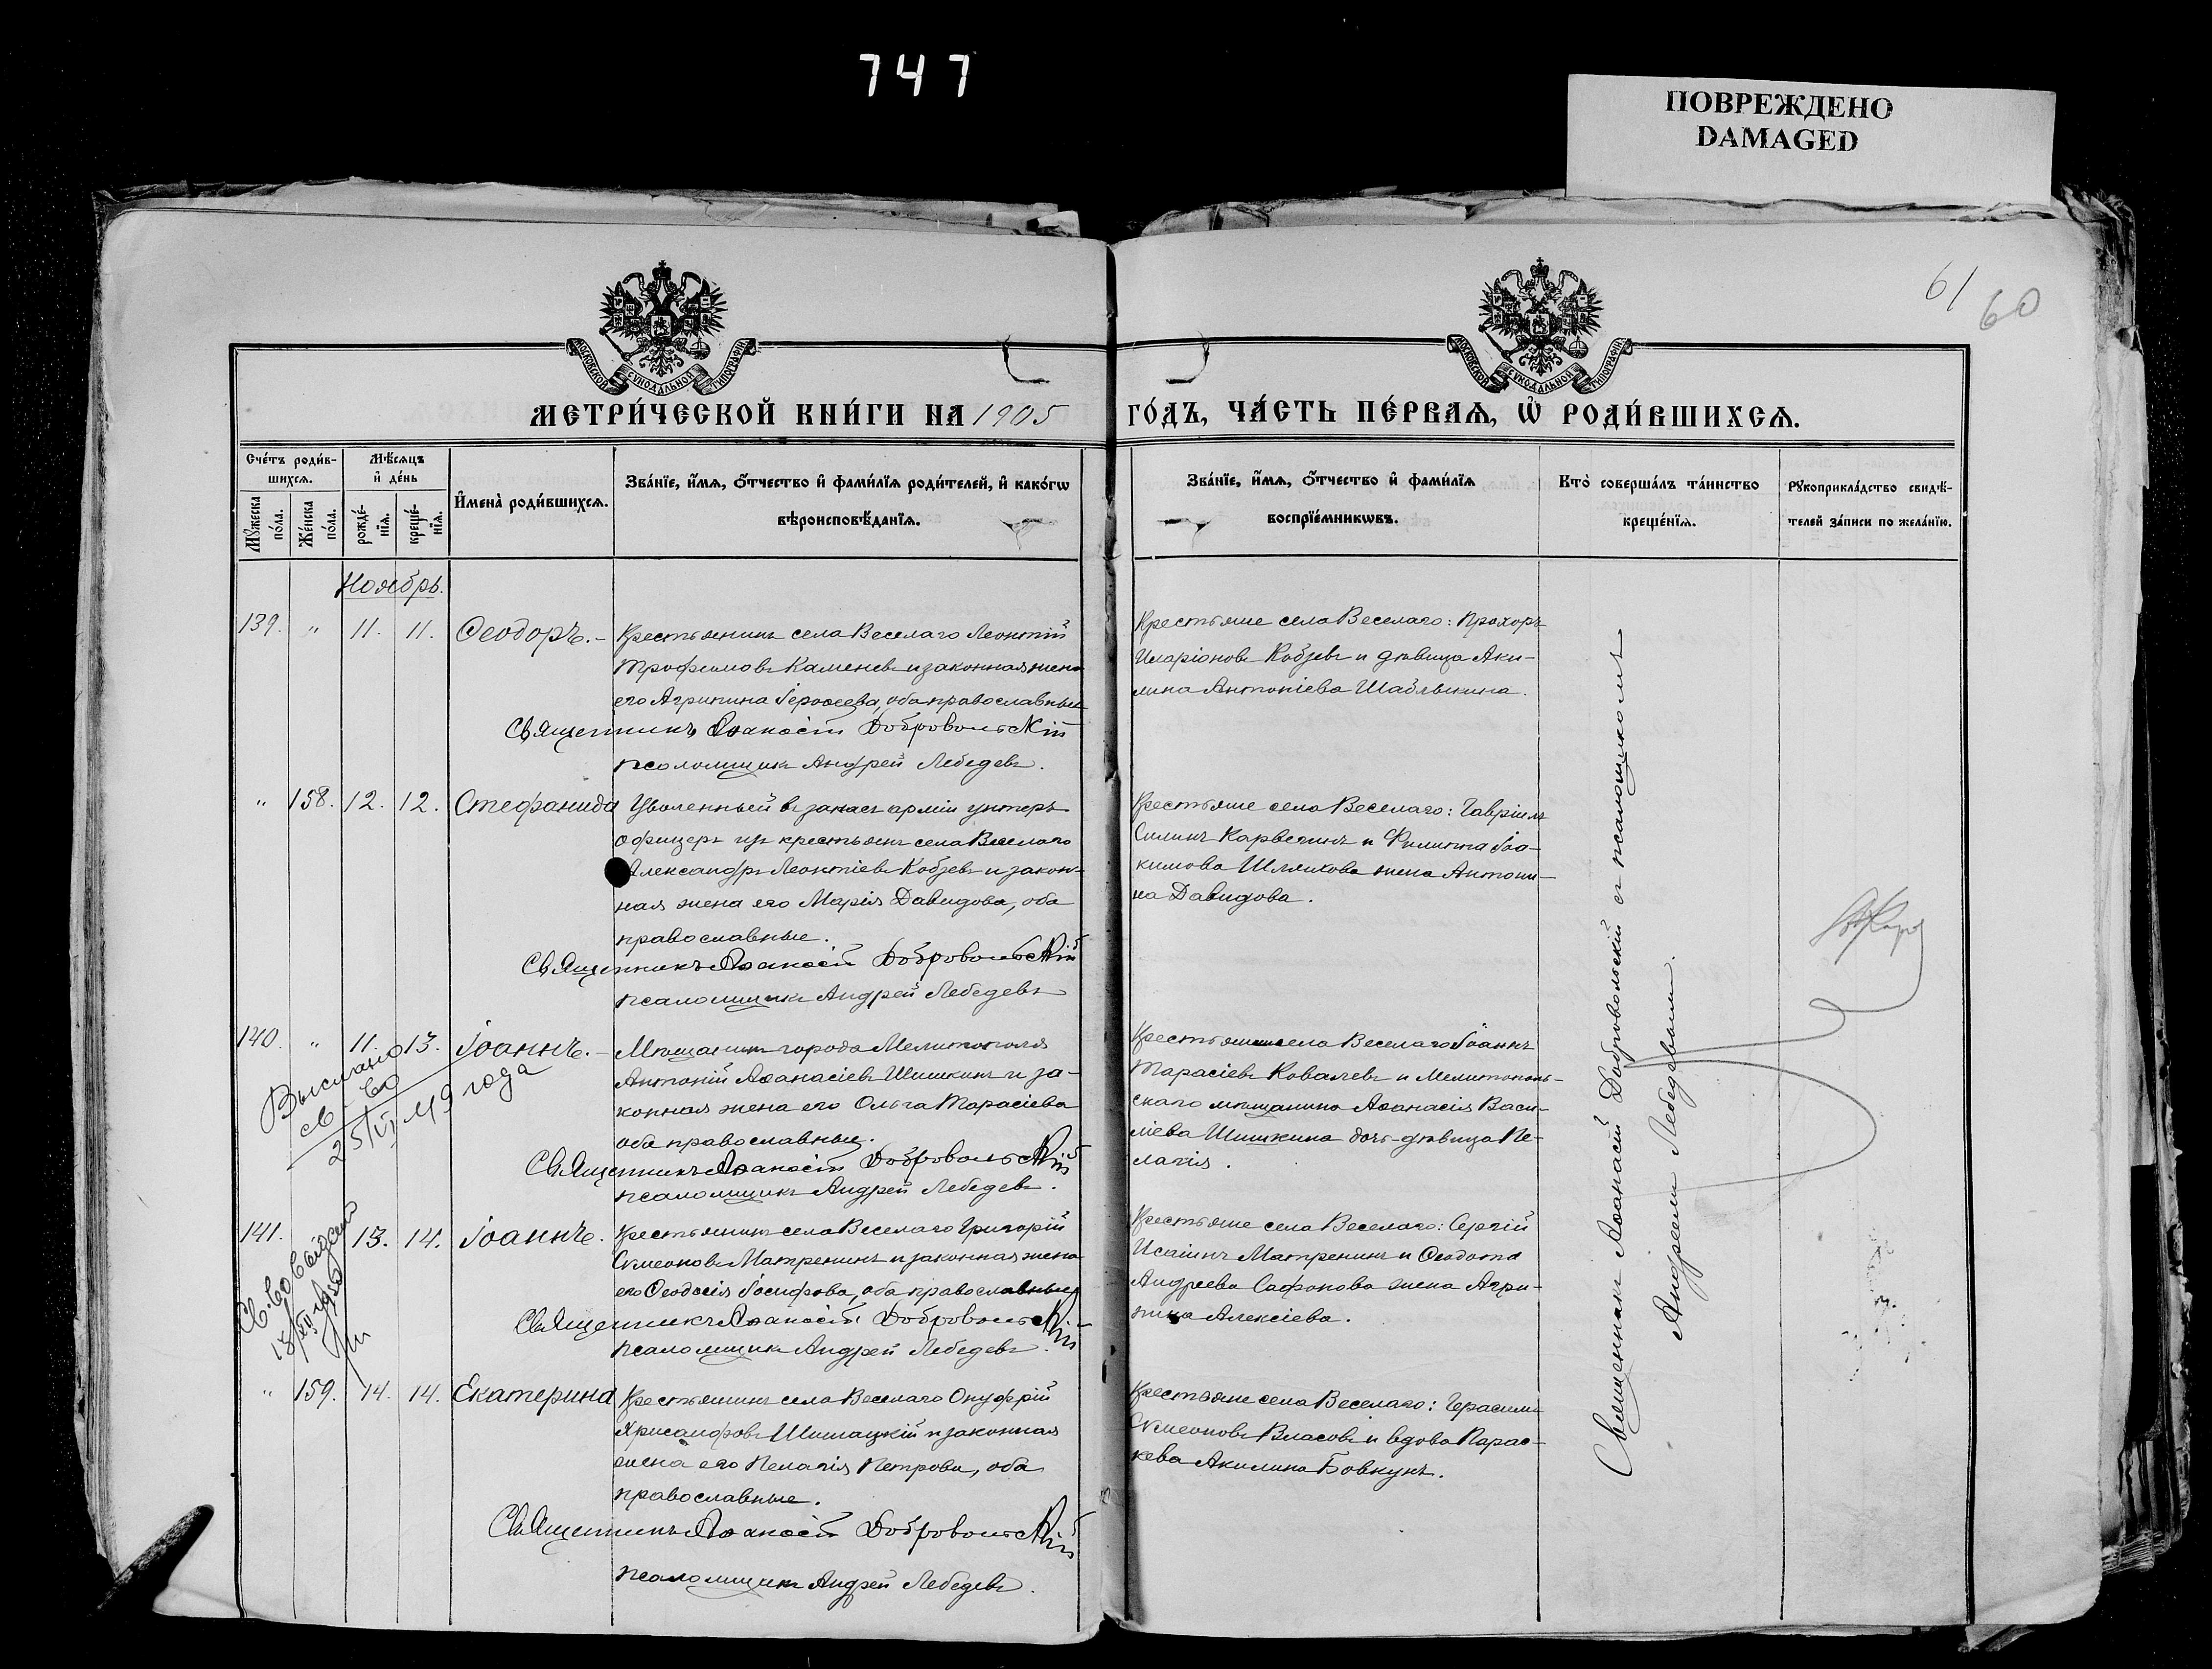 747
ПОВРЕЖДЕНО
DAMAGED
61
60
МОСКОВСКОЙ СѴНОДАЛЬНОЙ ТИПОГРАФІИ
МОСКОВСКОЙ СѴНОДАЛЬНОЙ ТИПОГРАФІИ
МЕТРИ́ЧЕСКОЙ КНИ́ГИ НА 1905 ГО́ДЪ, ЧА́СТЬ ПЕ́РВАѦ, Ѡ҆ РОДИ́ВШИХСѦ.
Сче́тъ роди́в-
шихсѧ.
Мꙋ́жеска по́ла.
Же́нска по́ла.
Мѣ́сѧцъ
и҆ де́нь
рожде́-нїѧ.
креще́-нїѧ.
И҆мена̀ роди́вшихсѧ.
Зва́нїе, и҆́мѧ, ѻ҆́тчество и҆ фами́лїѧ роди́телей, и҆ како́гѡ
вѣроисповѣ́данїѧ.
Зва́нїе, и҆́мѧ, ѻ҆́тчество и҆ фами́лїѧ
воспрїе́мникѡвъ.
Кто̀ соверша́лъ та́инство
креще́нїѧ.
Рꙋкоприкла́дство свидѣ́-
телей за́писи по жела́нїю.
Ноябрь.
139. " 11. 11. Ѳеодоръ.-
Крестьянинъ села Веселаго Леонтій
Трофимовъ Каменевъ и законная жена
его Агрипина Іероѳеева, оба православные
Священникъ Аѳанасій Добровольскій
псаломщикъ Андрей Лебедевъ.
Крестьяне села Веселаго: Прохоръ
Иларіоновъ Кобзевъ и дѣвица Аки-
лина Антоніева Шаблыкина.
" 158. 12. 12. Стефанида
Уволенный въ запасъ арміи унтеръ
офицеръ изъ крестьянъ села Веселаго
Александръ Леонтіевъ Кобзевъ и закон-
ная жена его Марія Давидова, оба
православные.
Священникъ Аѳанасій Добровольскій
псаломщикъ Андрей Лебедевъ
Крестьяне села Веселаго: Гавріилъ
Силинъ Карвечинъ и Филиппа Іоа-
кимова Шляхова жена Антони-
на Давидова.
140. " 11. 13. Іоаннъ.-
Выслано
св-во
25/VI 49 года
Мѣщанинъ города Мелитополя
Антоній Аѳанасіевъ Шишкинъ и за-
конная жена его Ольга Тарасіева
оба православные.
Священникъ Аѳанасій Добровольскій
псаломщикъ Андрей Лебедевъ.
Крестьянинъ села Веселаго Іоаннъ
Тарасіевъ Ковалевъ и Мелитополь-
скаго мѣщанина Аѳанасія Васи-
ліева Шишкина дочь-дѣвица Пе-
лагія.
141. 13. 14. Іоаннъ.
Крестьянинъ села Веселаго Григорій
Симеоновъ Матренинъ и законная жена
его Ѳеодосія Іосифова, оба православные
Священникъ Аѳанасій Добровольскій
псаломщикъ Андрей Лебедевъ.
Крестьяне села Веселаго: Сергій
Исаіинъ Матренинъ и Ѳеодота
Андреева Сафонова жена Агри-
пина Алексіева.
" 159. 14. 14. Екатерина
Крестьянинъ села Веселаго Онуфрій
Хрисанфовъ Шишацкій и законная
жена его Пелагія Петрова, оба
православные.
Священникъ Аѳанасій Добровольскій
псаломщикъ Андрей Лебедевъ.
Крестьяне села Веселаго: Герасимъ
Симеоновъ Власовъ и вдова Парас-
кева Акилина Бовкунъ.
Священникъ Аѳанасій Добровольскій съ псаломщикомъ
Андреемъ Лебедевымъ.